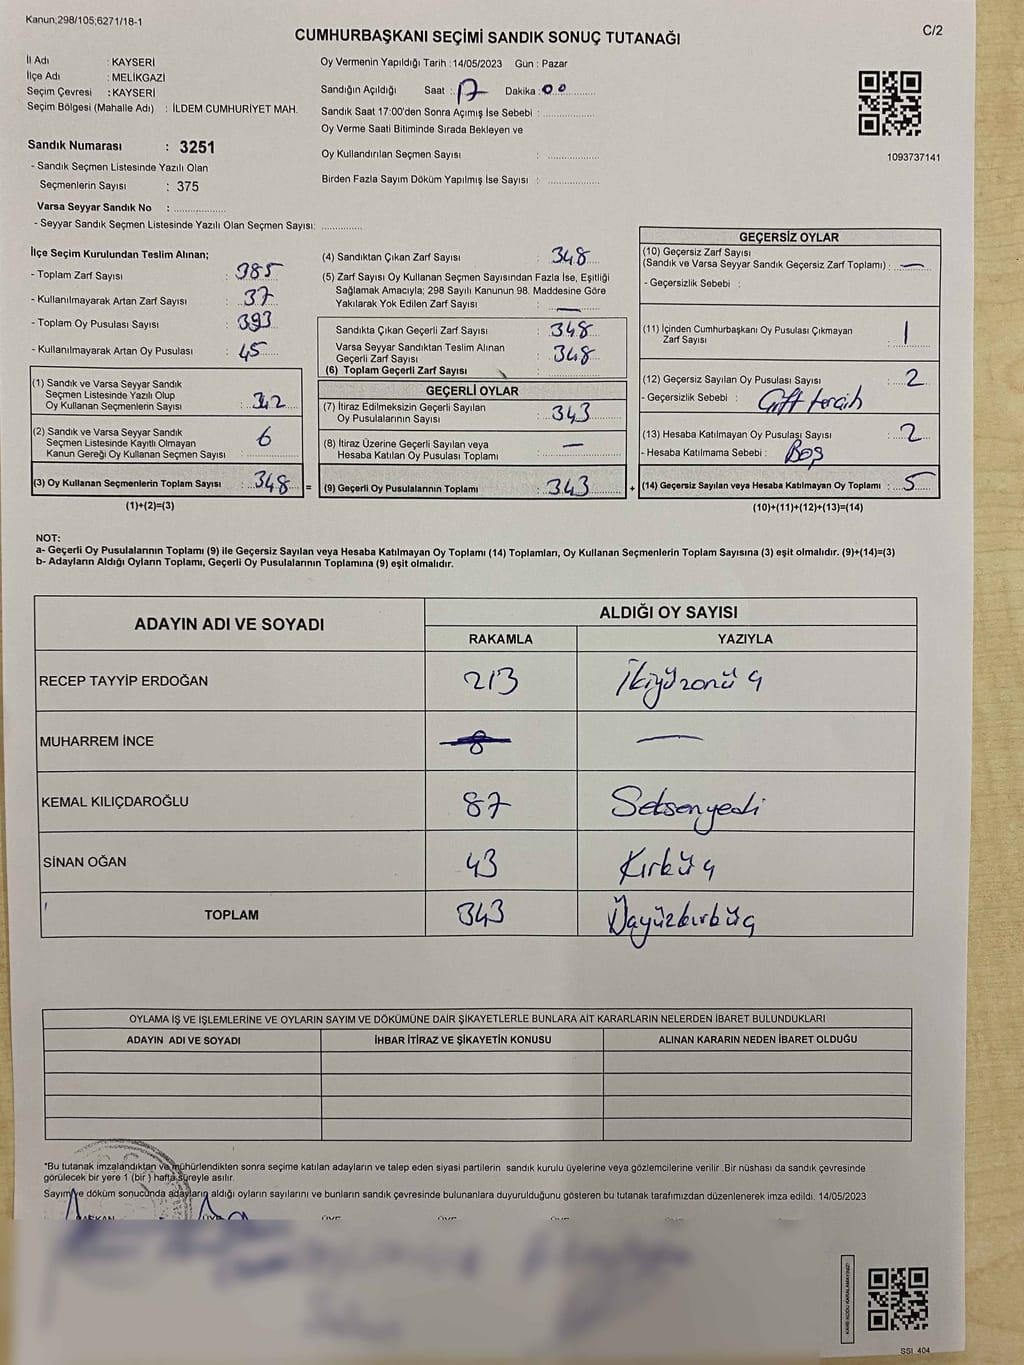 Kanun;298/105;6271/18-1
C/2
CUMHURBAŞKANI SEÇİMİ SANDIK SONUÇ TUTANAĞI
İl Adı : KAYSERİ
İlçe Adı : MELİKGAZİ
Seçim Çevresi : KAYSERİ
Seçim Bölgesi (Mahalle Adı) : İLDEM CUMHURİYET MAH.
Sandık Numarası : 3251
- Sandık Seçmen Listesinde Yazılı Olan
Seçmenlerin Sayısı : 375
Varsa Seyyar Sandık No :
- Seyyar Sandık Seçmen Listesinde Yazılı Olan Seçmen Sayısı:
Oy Vermenin Yapıldığı Tarih :14/05/2023 Gün : Pazar
Sandığın Açıldığı Saat : 17 Dakika : 00
Sandık Saat 17:00'den Sonra Açımış İse Sebebi :
Oy Verme Saati Bitiminde Sırada Bekleyen ve
Oy Kullandırılan Seçmen Sayısı :
Birden Fazla Sayım Döküm Yapılmış İse Sayısı :
1093737141
İlçe Seçim Kurulundan Teslim Alınan;
- Toplam Zarf Sayısı : 385
- Kullanılmayarak Artan Zarf Sayısı : 37
- Toplam Oy Pusulası Sayısı : 393
- Kullanılmayarak Artan Oy Pusulası : 45
(1) Sandık ve Varsa Seyyar Sandık
Seçmen Listesinde Yazılı Olup
Oy Kullanan Seçmenlerin Sayısı : 342
(2) Sandık ve Varsa Seyyar Sandık
Seçmen Listesinde Kayıtlı Olmayan
Kanun Gereği Oy Kullanan Seçmen Sayısı : 6
(3) Oy Kullanan Seçmenlerin Toplam Sayısı : 348 =
(1)+(2)=(3)
(4) Sandıktan Çıkan Zarf Sayısı : 348
(5) Zarf Sayısı Oy Kullanan Seçmen Sayısından Fazla İse, Eşitliği
Sağlamak Amacıyla; 298 Sayılı Kanunun 98. Maddesine Göre
Yakılarak Yok Edilen Zarf Sayısı : —
Sandıkta Çıkan Geçerli Zarf Sayısı : 348
Varsa Seyyar Sandıktan Teslim Alınan
Geçerli Zarf Sayısı : 348
(6) Toplam Geçerli Zarf Sayısı :
GEÇERLİ OYLAR
(7) İtiraz Edilmeksizin Geçerli Sayılan
Oy Pusulalarının Sayısı : 343
(8) İtiraz Üzerine Geçerli Sayılan veya
Hesaba Katılan Oy Pusulası Toplamı : —
(9) Geçerli Oy Pusulalarının Toplamı : 343 +
GEÇERSİZ OYLAR
(10) Geçersiz Zarf Sayısı
(Sandık ve Varsa Seyyar Sandık Geçersiz Zarf Toplamı) : —
- Geçersizlik Sebebi :
(11) İçinden Cumhurbaşkanı Oy Pusulası Çıkmayan
Zarf Sayısı : 1
(12) Geçersiz Sayılan Oy Pusulası Sayısı : 2
- Geçersizlik Sebebi : Çift tercih
(13) Hesaba Katılmayan Oy Pusulası Sayısı : 2
- Hesaba Katılmama Sebebi : Boş
(14) Geçersiz Sayılan veya Hesaba Katılmayan Oy Toplamı : 5
(10)+(11)+(12)+(13)=(14)
NOT:
a- Geçerli Oy Pusulalarının Toplamı (9) ile Geçersiz Sayılan veya Hesaba Katılmayan Oy Toplamı (14) Toplamları, Oy Kullanan Seçmenlerin Toplam Sayısına (3) eşit olmalıdır. (9)+(14)=(3)
b- Adayların Aldığı Oyların Toplamı, Geçerli Oy Pusulalarının Toplamına (9) eşit olmalıdır.
ADAYIN ADI VE SOYADI
ALDIĞI OY SAYISI
RAKAMLA YAZIYLA
RECEP TAYYİP ERDOĞAN 213 İkiyüzonüç
MUHARREM İNCE —
KEMAL KILIÇDAROĞLU 87 Seksenyedi
SİNAN OĞAN 43 Kırküç
TOPLAM 343 Üçyüzkırküç
OYLAMA İŞ VE İŞLEMLERİNE VE OYLARIN SAYIM VE DÖKÜMÜNE DAİR ŞİKAYETLERLE BUNLARA AİT KARARLARIN NELERDEN İBARET BULUNDUKLARI
ADAYIN ADI VE SOYADI İHBAR İTİRAZ VE ŞİKAYETİN KONUSU ALINAN KARARIN NEDEN İBARET OLDUĞU
*Bu tutanak imzalandıktan ve mühürlendikten sonra seçime katılan adayların ve talep eden siyasi partilerin sandık kurulu üyelerine veya gözlemcilerine verilir .Bir nüshası da sandık çevresinde
görülecek bir yere 1 (bir ) hafta süreyle asılır.
Sayım ve döküm sonucunda adayların aldığı oyların sayılarını ve bunların sandık çevresinde bulunanlara duyurulduğunu gösteren bu tutanak tarafımızdan düzenlenerek imza edildi. 14/05/2023
KARE KODU KARALAMAYINIZ!
SSI_404